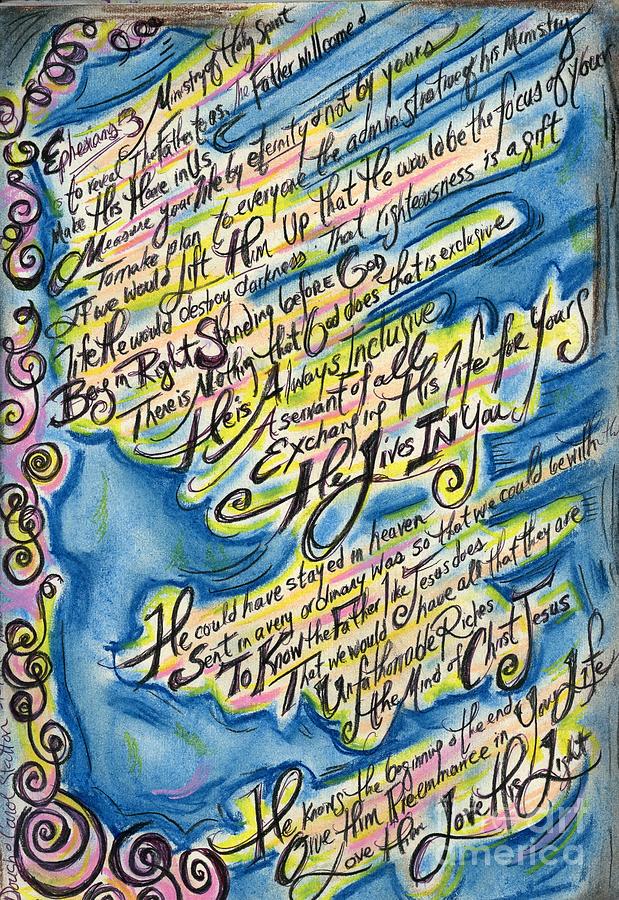 Ephesians 3
Ministry of Holy Spirit
is to reveal The Father to us. The Father Willcomed
Make His Home in Us
Measure your life by eternity & not by yours
To make plan to everyone the administrative of his Ministry
If we would Lift Him Up that He would be the focus of your
life He would destroy darkness. That righteousness is a gift
Being in Right Standing before God
There is Nothing that God does that is exclusive
He is Always Inclusive
A servant of all
Exchanging His life for yours
He Lives IN You
He could have stayed in heaven
Sent in a very ordinary was so that we could be with
To Know the Father like Jesus does
That we would have all that they are
Unfathomable Riches
the Mind of Christ Jesus
He knows the beginning & the end
Give Him Preeminance in Your Life
Love Him Love His Light
fine art
america